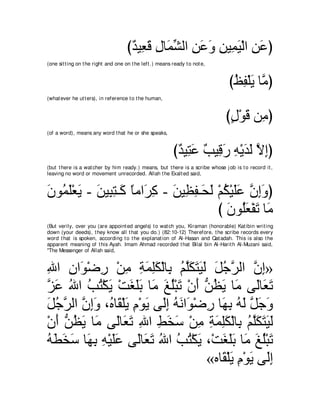 (عَنِ الْيَمِينِ وَعَنِ الشِّمَالِ قَعِيدٌ)
(one sitting on the right and one on the left.) means ready to note,
(مَّا يَلْفِظُ)
(whatever he utters), in reference to the human,
(مِن قَوْلٍ)
(of a word), means any word that he or she speaks,
(إِلاَّ لَدَيْهِ رَقِيبٌ عَتِيدٌ)
(but there is a watcher by him ready.) means, but there is a scribe whose job is to record it,
leaving no word or movement unrecorded. Allah the Exalted said,
(وَإِنَّ عَلَيْكُمْ لَحَـفِظِينَ - كِرَاماً كَـتِبِينَ - يَعْلَمُونَ
مَا تَفْعَلُونَ )
(But verily, over you (are appointed angels) to watch you, Kiraman (honorable) Katibin writing
down (your deeds), they know all that you do.) (82:10-12) Therefore, the scribe records every
word that is spoken, according to the explanation of Al-Hasan and Qatadah. This is also the
apparent meaning of this Ayah. Imam Ahmad recorded that Bilal bin Al-Harith Al-Muzani said,
"The Messenger of Allah said,
«إِنَّ الرَّجُلَ لَيَتَكَلَّمُ بِالْكَلِمَةِ مِنْ رِضْوَانِ اللهِ
تَعَالَى مَا يَظُنُّ أَنْ تَبْلُغَ مَا بَلَغَتْ يَكْتُبُ اللهُ عَزَّ
وَجَلَّ لَهُ بِهَا رِضْوَانَهُ إِلَى يَوْمِ يَلْقَاهُ، وَإِنَّ الرَّجُلَ
لَيَتَكَلَّمُ بِالْكَلِمَةِ مِنْ سَخَطِ اللهِ تَعَالَى مَا يَظُنُّ أَنْ
تَبْلُغَ مَا بَلَغَتْ، يَكْتُبُ اللهُ تَعَالَى عَلَيْهِ بِهَا سَخَطَهُ
إِلَى يَوْمِ يَلْقَاه»